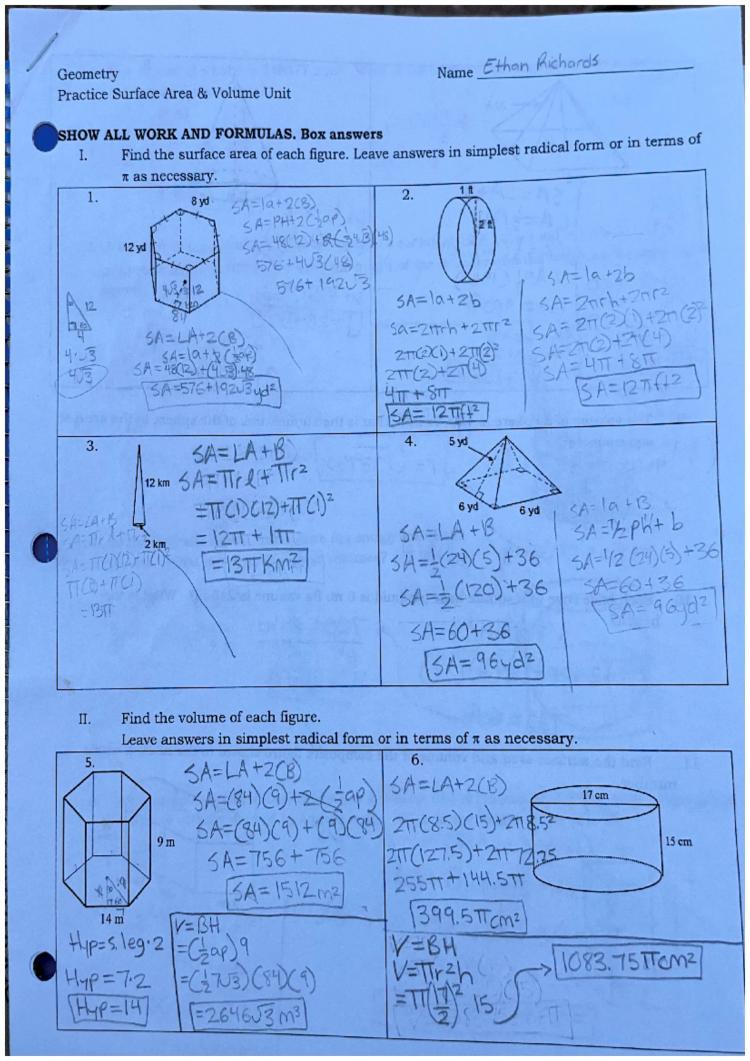 Geometry
Name Ethan Richards
Practice Surface Area & Volume Unit
SHOW ALL WORK AND FORMULAS. Box answers
I. Find the surface area of each figure. Leave answers in simplest radical form or in terms of
π as necessary.
1.
8 yd
12 yd
SA=la+2(B)
SA=PH+2(½ap)
576+4√3(48)
576+192√3
12
4
4·√3
4√3
SA=LA+2(B)
SA=48(12)+(4√3)48
SA=576+192√3yd²
2.
1 ft
2 ft
SA=la+2b
Sa=2πrh+2πr²
2π(2)(1)+2π(2)²
2π(2)+2π(4)
4π+8π
SA=12πft²
SA=la+2b
SA=2πrh+2πr²
SA=2π(2)(1)+2π(2)²
SA=2π(2)+2π(4)
SA=4π+8π
SA=12πft²
3.
12 km
2 km
SA=LA+B
SA=πrl+πr²
=π(1)(12)+π(1)²
=12π+1π
=13πKm²
SA=LA+B
SA=πrl+πr²
=π(1)(12)+π(1)²
=13π
4.
5 yd
6 yd
6 yd
SA=LA+B
SA=½(24)(5)+36
SA=½(120)+36
SA=60+36
SA=96yd²
SA=la+B
SA=½pl+b
SA=1/2(24)(5)+36
SA=60+36
SA=96yd²
II. Find the volume of each figure.
Leave answers in simplest radical form or in terms of π as necessary.
5.
9 m
14 m
SA=LA+2(B)
SA=(84)(9)+2(½ap)
SA=(84)(9)+(9)(84)
SA=756+756
SA=1512m²
Hyp=s.leg·2
Hyp=7·2
Hyp=14
V=BH
=(½ap)9
=(½7√3)(84)(9)
=2646√3m³
6.
17 cm
15 cm
SA=LA+2(B)
2π(8.5)(15)+2π8.5²
2π(127.5)+2π72.25
255π+144.5π
399.5πcm²
V=BH
V=πr²h
=π(17/2)²15
1083.75πcm²